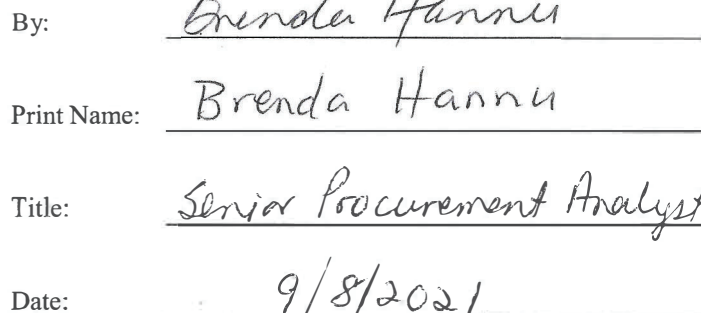 By: Brenda Hannu
Print Name: Brenda Hannu
Title: Senior Procurement Analyst
Date: 9/8/2021